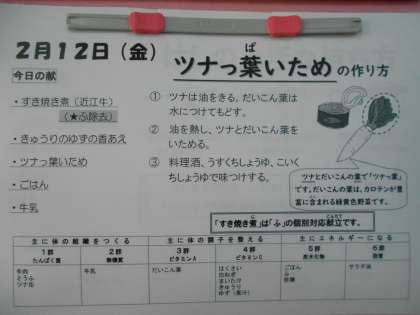 2月12日(金)
今日の献
・すき焼き煮(近江牛)
(★ふ除去)
・きゅうりのゆずの香あえ
・ツナっ葉いため
・ごはん
・牛乳
ツナっ葉いための作り方
ぱ
① ツナは油をきる。だいこん葉は
水につけてもどす。
② 油を熱し、ツナとだいこん葉を
いためる。
③ 料理酒、うすくちしょうゆ、こいく
ちしょうゆで味つけする。
ツナとだいこんの葉で「ツナっ葉」
です。だいこんの葉は、カロテンが豊
富に含まれる緑黄色野菜です。
「すき焼き煮」は「ふ」の個別対応献立です。
主に体の組織をつくる
主に体の調子を整える
主にエネルギーになる
1群 2群 3群 4群 5群 6群
たんぱく質 無機質 ビタミンA ビタミンC 炭水化物 脂質
牛肉
とうふ
ツナ缶
牛乳
だいこん葉
はくさい
白ねぎ
まいたけ
きゅうり
ゆず(果汁)
ごはん
ふ
砂糖
サラダ油